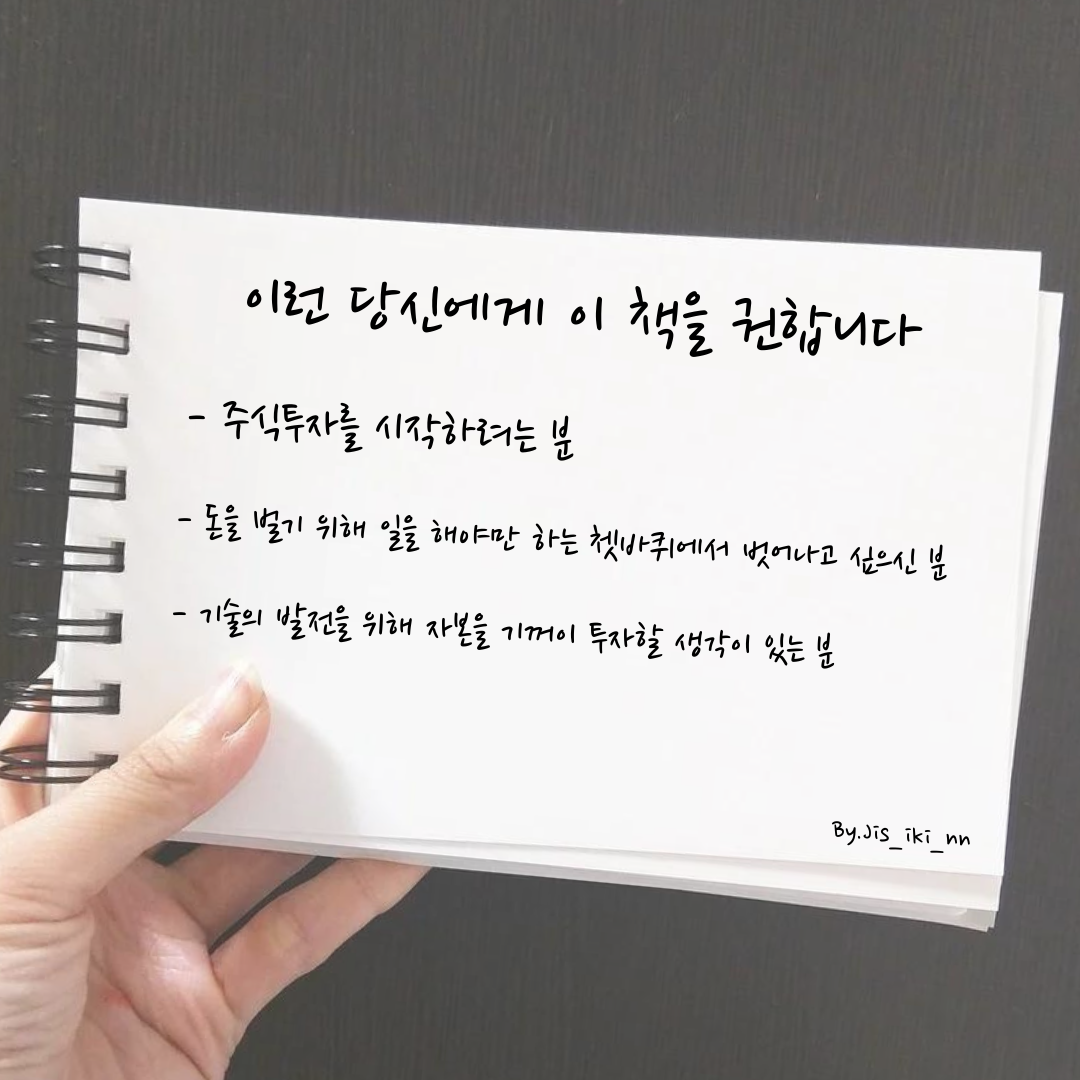 이런 당신에게 이 책을 권합니다
- 주식투자를 시작하려는 분
- 돈을 벌기 위해 일을 해야만 하는 쳇바퀴에서 벗어나고 싶으신 분
- 기술의 발전을 위해 자본을 기꺼이 투자할 생각이 있는 분
By.Jis_iki_nn